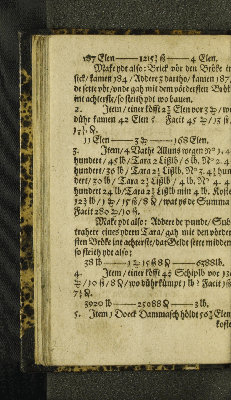 187 Elen — 1215¾ ß — 4 Elen.
Make ydt also: Brick vör den Bröke in
sick / kamen 184 / Addere 3 dartho / kamen 187 /
de sette vör / vnde gah mit dem vördersten Brök
int achterste / so steith ydt wo bauen.
2. Item / einer köfft Elen vor / wo
dühr kamen 42 Elen? Facit 45 / 13 ß /
11 Elen — 3 — 168 Elen.
3. Item / 4 Vathe Alluns wegen No 1. 4
hundert / 45 lb / Tara 2 Lißlb / 6 lb. No 2. 4
hundert / 36 lb / Tara 2 Lißlb. No 3. 4¾ hun
dert / 30 lb / Tara 2 Lißlb / 4 lb. No 4. 4
hundert 24 lb / Tara 2 Lißlb min 4 lb. Kostet
12 lb / 1 / 15 ß / 8 / wat ys de Summa
Facit 280 / 10 ß.
Make ydt also: Addere de punde / Sub-
trahere eines ydern Tara / gah mit den vörder-
sten Bröke int achterste / dat Geldt sette midden
so steith ydt also:
38 lb — 1 15 ß 8 — 6388 lb.
4. Item / einer köfft Schiplb vor
/ 10 ß / 8 / wo dühr kümpt 1 lb? Facit 1 ß
3020 lb — 25088 — 3 lb.
5. Item / Doeck Dammasch höldt Elen
koste